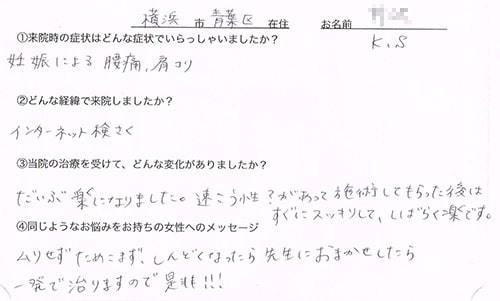 横浜 市 青葉区 在住 お名前
K.S
①来院時の症状はどんな症状でいらっしゃいましたか?
妊娠による 腰痛、肩コリ
②どんな経緯で来院しましたか?
インターネット検さく
③当院の治療を受けて、どんな変化がありましたか?
だいぶ楽になりました。速こう性?があって施術してもらった後は
すぐにスッキリして、しばらく楽です。
④同じようなお悩みをお持ちの女性へのメッセージ
ムリせずためこまず、しんどくなったら先生におまかせしたら
一発で治りますので是非!!!